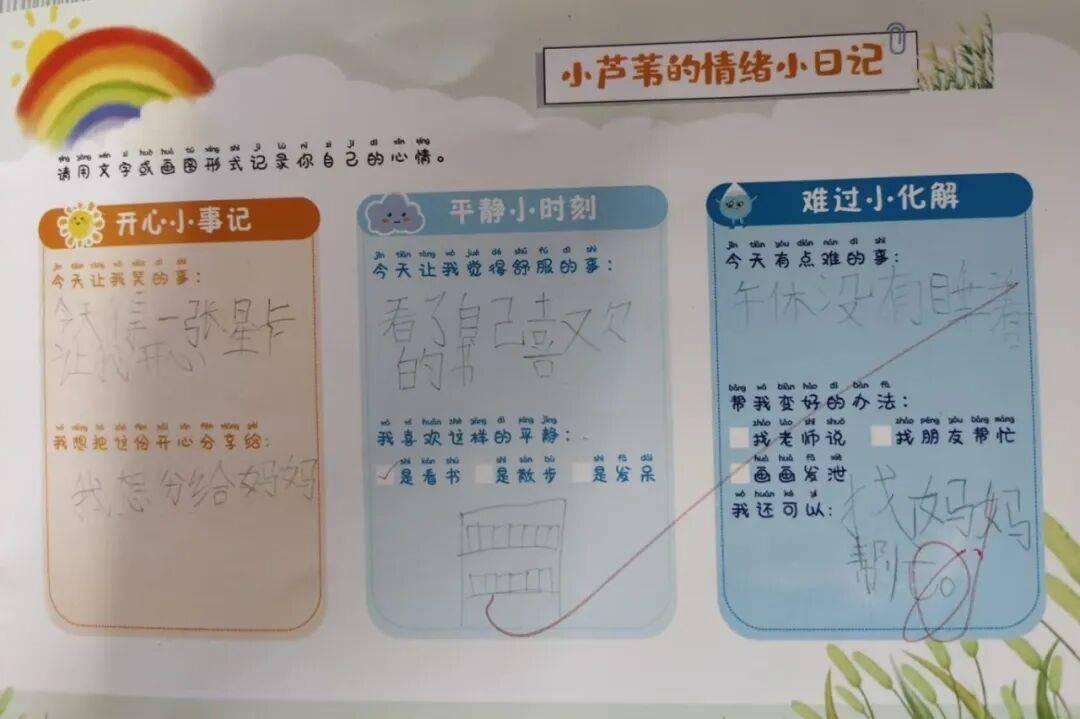 小芦苇的情绪小日记
请用文字或画图形式记录你自己的心情。
开心小事记
今天让我笑的事:
今天 一张星卡
让我开心
我想把这份开心分享给:
我想分给妈妈
平静小时刻
jīn tiān ràng wǒ jué dé shū fú dì shì
今天让我觉得舒服的事:
看了自己喜欢
的书
wǒ xǐ huān zhè yàng dì píng jìng
我喜欢这样的平静:
shì kàn shū shì sàn bù shì fā dāi
✓是看书 是散步 是发呆
难过小化解
jīn tiān yǒu diǎn nán dì shì
今天有点难的事:
午休没有睡着
bāng wǒ biàn hǎo dì bàn fǎ
帮我变好的办法:
zhǎo lǎo shī shuō zhǎo péng yǒu bāng máng
找老师说 找朋友帮忙
huà huà fā xiè
画画发泄
wǒ huán kě yǐ
我还可以:
找妈妈
帮忙